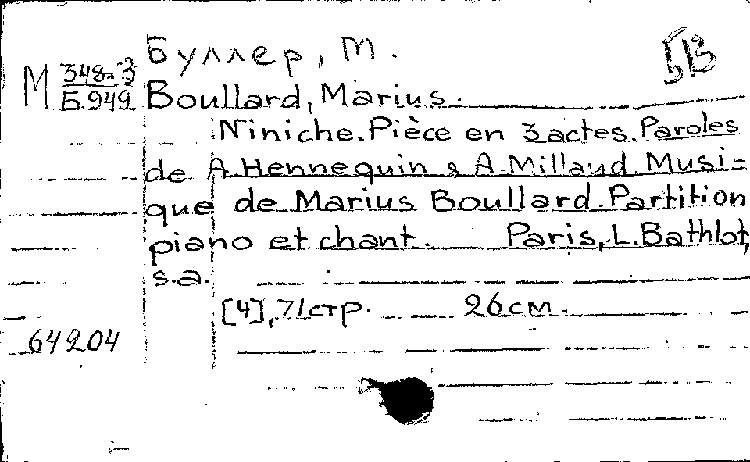 Буллер, М.
БВ
М 348-3
Б.949
Boullard, Marius.
Niniche. Pièce en 3 actes. Paroles
de A. Hennequin & A. Millaud. Musi-
que de Marius Boullard. Partition
piano et chant. Paris, L. Bathlot,
s.a.
[4], 71 стр. 26 см.
64204